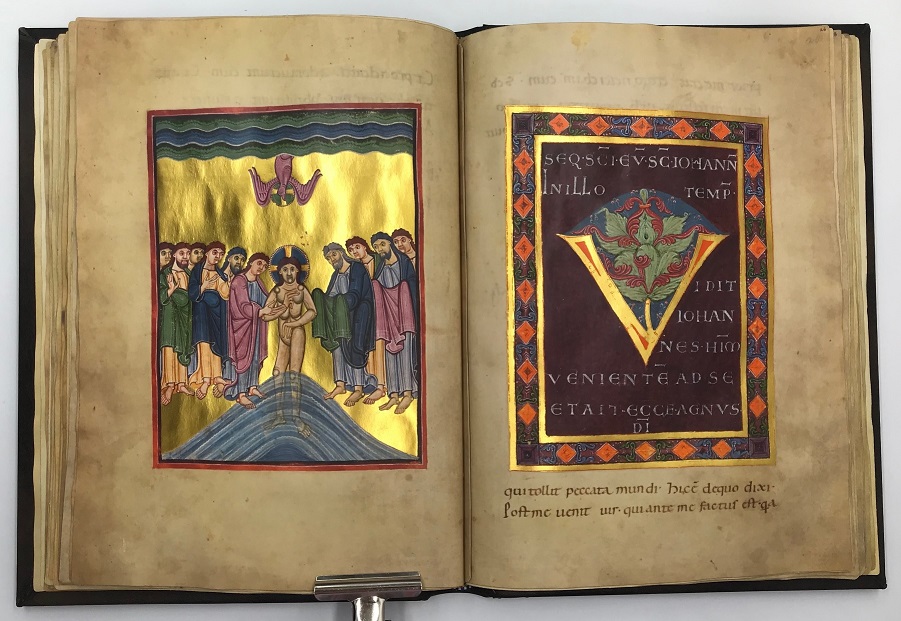 SEQ·SC̄I·EV̄·SC̄·IOHANN̄
IN ILLO TEMP̄·
VIDIT
IOHAN
NES·HIM̄
VENIENTĒ AD SE
ET AIT·ECCE AGNVS
D̄I
qui tollit peccata mundi· hic ē de quo dixi·
Post me uenit uir· qui ante me factus est· qa